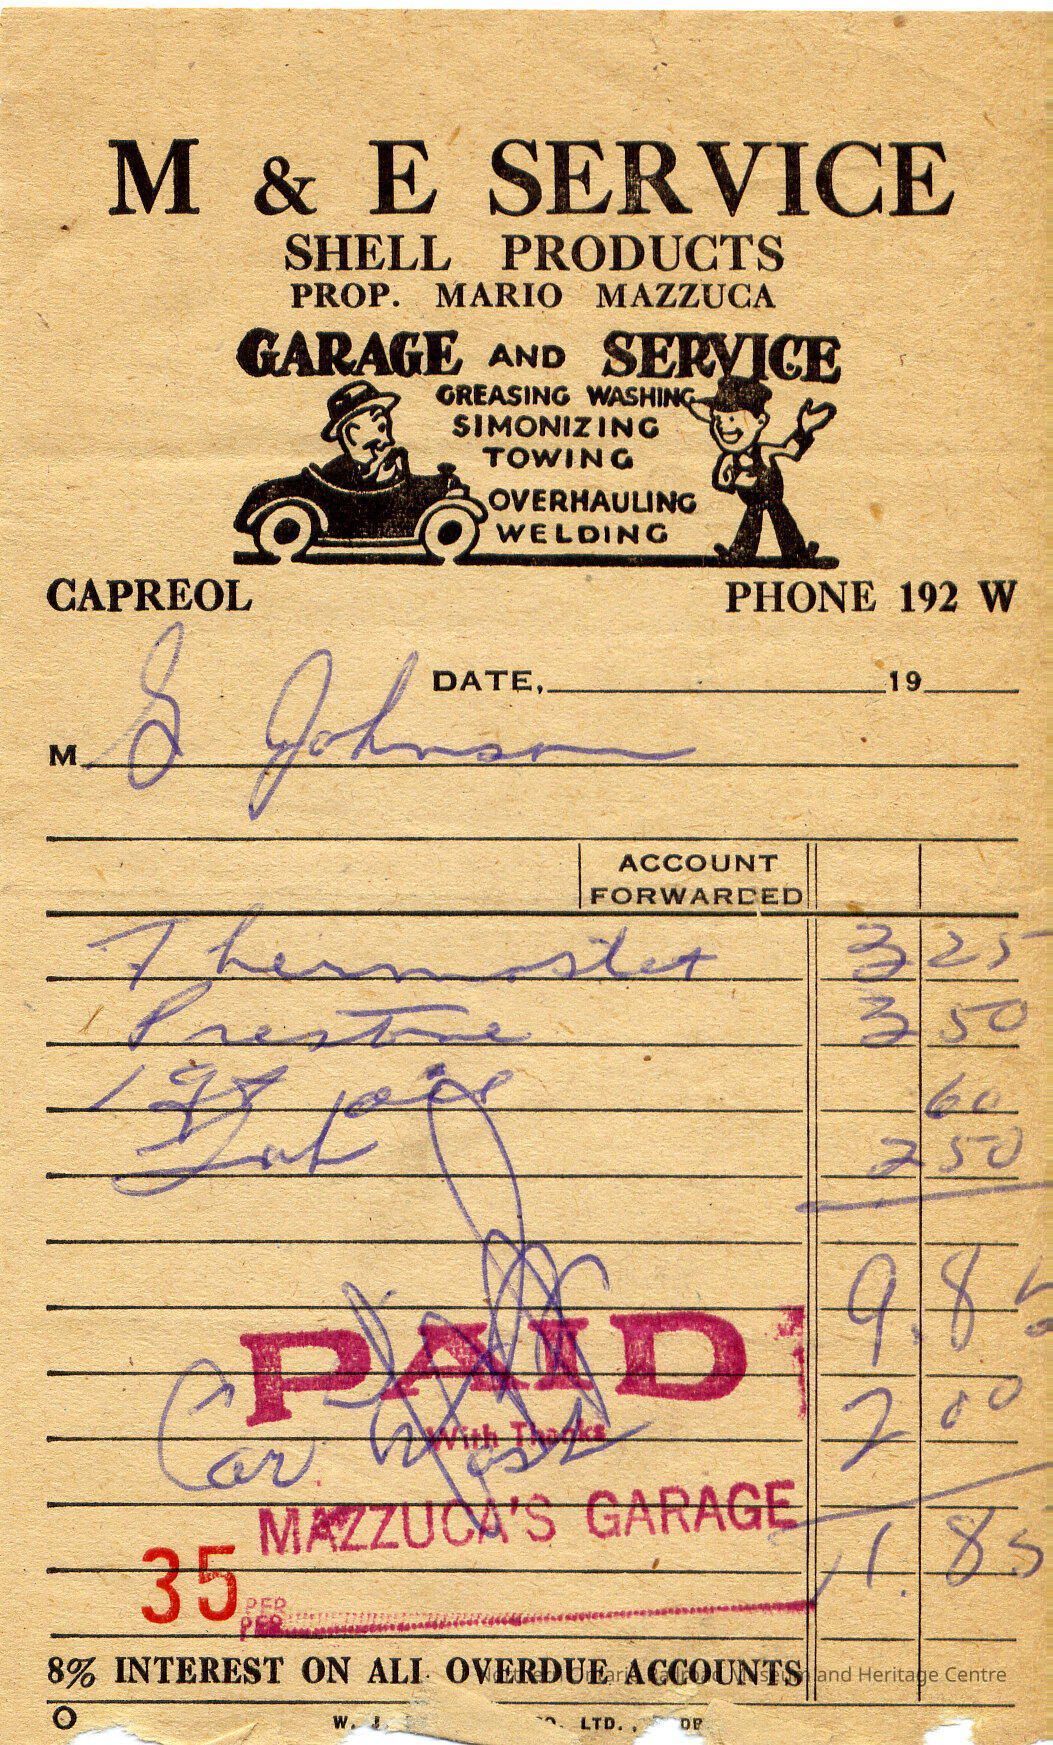 M & E SERVICE
SHELL PRODUCTS
PROP. MARIO MAZZUCA
GARAGE AND SERVICE
GREASING WASHING
SIMONIZING
TOWING
OVERHAULING
WELDING
CAPREOL PHONE 192 W
DATE, 19
M G Johnson
ACCOUNT
FORWARDED
Thermostet 3 25
Prestone 3 50
1 qt oil 60
Lab 2 50
9.85
PAID
Car Wash 2 00
With Thanks
MAZZUCA'S GARAGE
11.85
35
PER
PER
8% INTEREST ON ALL OVERDUE ACCOUNTS
Northern Ontario Railroad Museum and Heritage Centre
W. J. CO. LTD.,